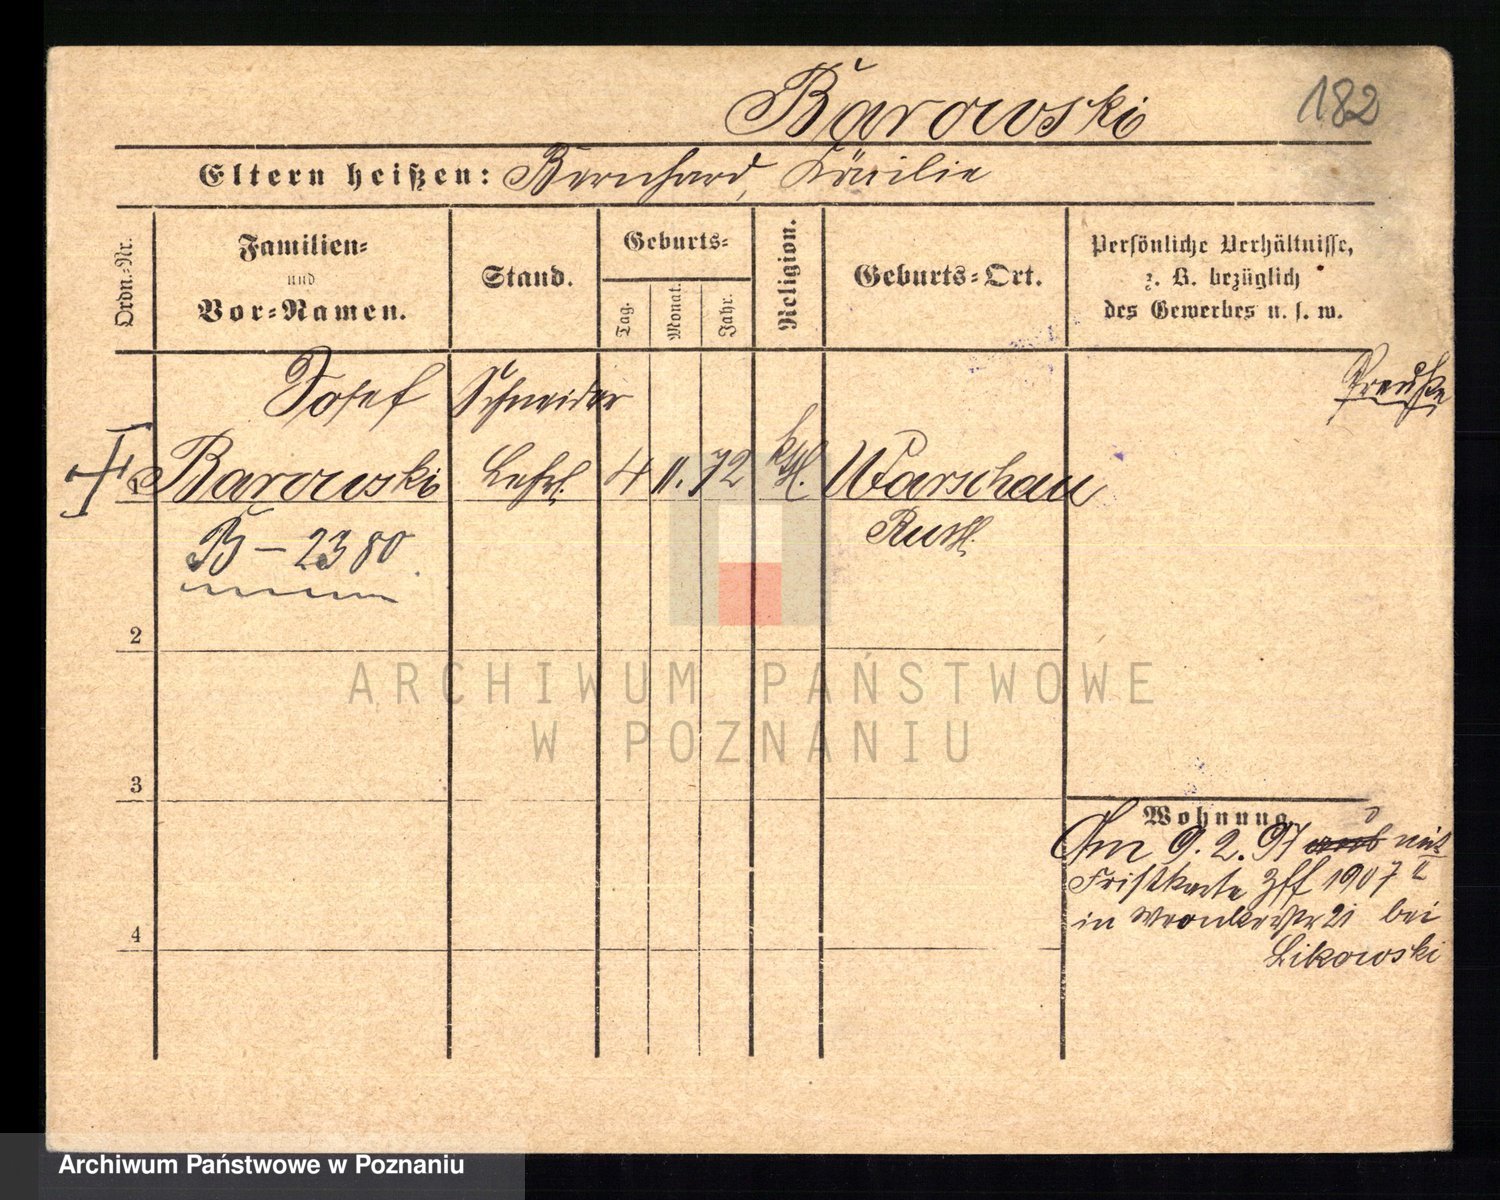 Barowski
182
Eltern heißen: Bernhard, Cäcilie
Ordn.-Nr.
Familien-
und
Vor-Namen.
Stand.
Geburts-
Tag.
Monat.
Jahr.
Religion.
Geburts-Ort.
Persönliche Verhältnisse,
z. B. bezüglich
des Gewerbes u. s. w.
Josef Schneider
Preuße
1 Barowski 4 11. 72 kth. Warschau
Russl.
B - 2380
2
3
4
Wohnung
Am 9. 2. 97 mit
Fristkarte Zff 1907 II
in Wronkerstr 21 bei
Likowski
ARCHIWUM PAŃSTWOWE
W POZNANIU
Archiwum Państwowe w Poznaniu